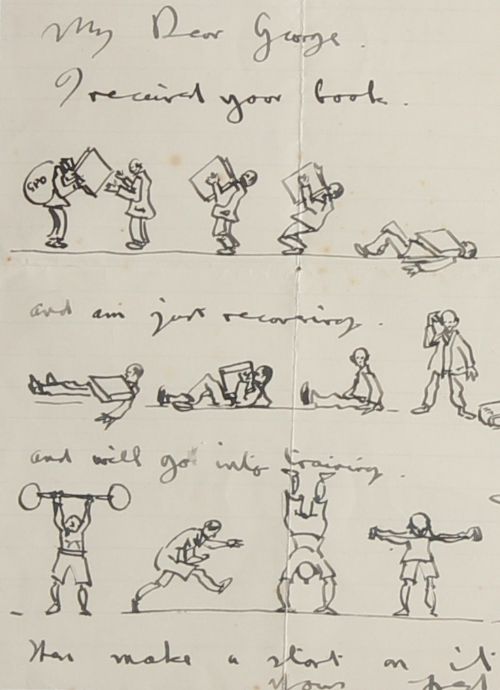 My Dear George.
I received your book.
GPO
and am just recovering.
and will go into training.
make a start on it
Yours